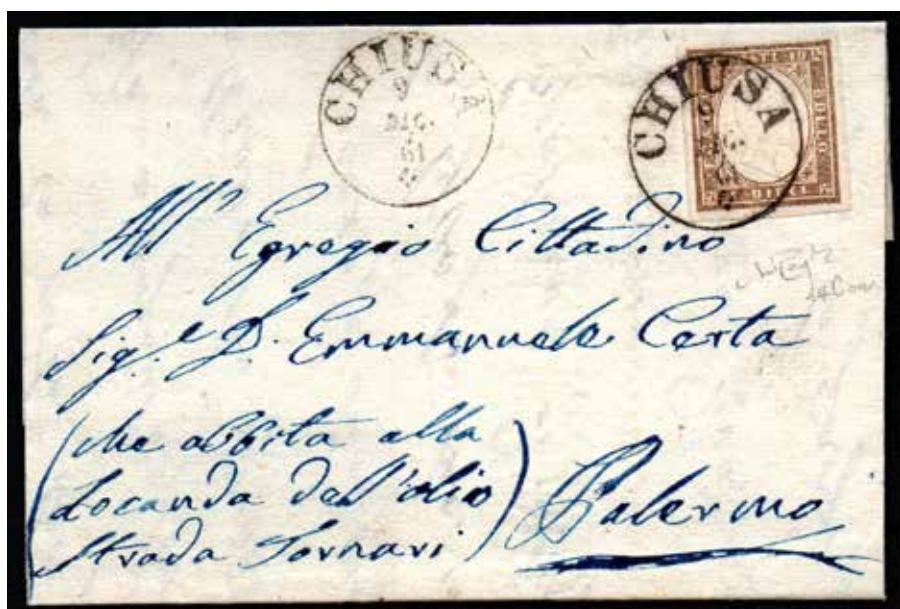 CHIUSA
9
DIC.
61
CHIUSA
9
DIC.
61
BOLLO
DIECI
All' Egregio Cittadino
Sig.e D. Emmanuele Certa
(che abbita alla
Locanda dell'olio
Strada Fornari)
Palermo